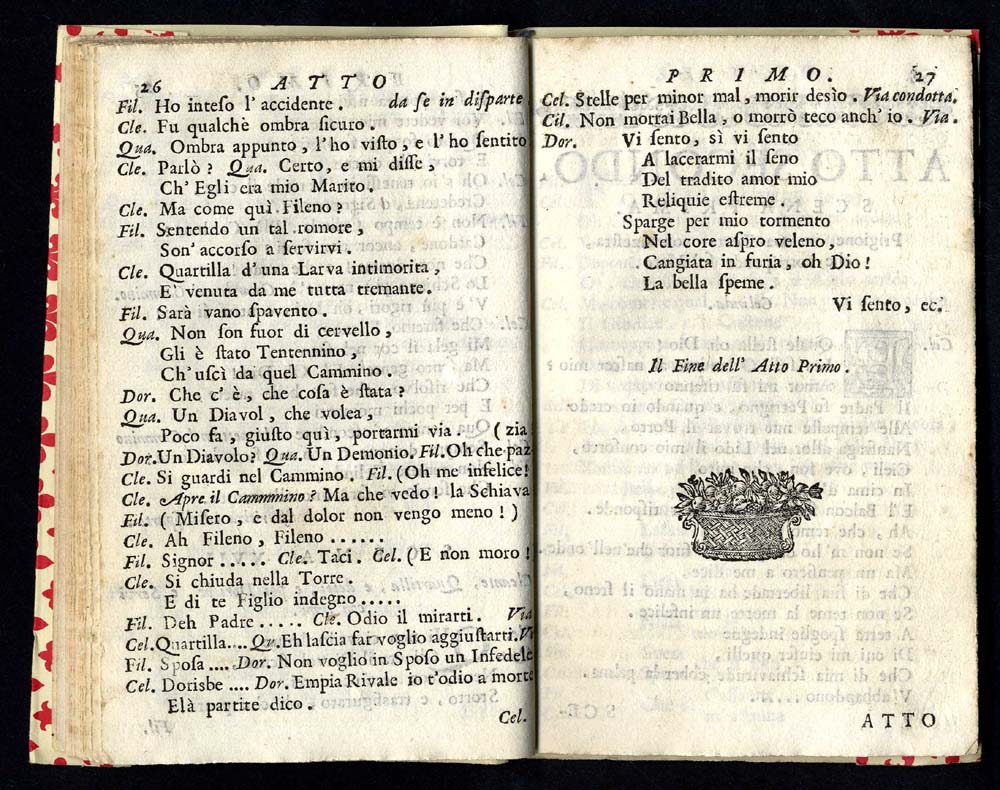 26 ATTO
Fil. Ho inteſo l' accidente. da ſe in diſparte
Cle. Fu qualchè ombra ſicuro.
Qua. Ombra appunto, l' ho viſto, e l' ho ſentito
Cle. Parlò? Qua. Certo, e mi diſſe,
Ch' Egli era mio Marito.
Cle. Ma come quì Fileno?
Fil. Sentendo un tal romore,
Son' accorſo a ſervirvi.
Cle. Quartilla d' una Larva intimorita,
E' venuta da me tutta tremante.
Fil. Sarà vano ſpavento.
Qua. Non ſon fuor di cervello,
Gli è ſtato Tentennino,
Ch' uſcì da quel Cammino.
Dor. Che c' è, che coſa è ſtata?
Qua. Un Diavol, che volea,
Poco fa, giuſto quì, portarmi via. (zia
Dor. Un Diavolo? Qua. Un Demonio. Fil. Oh che paz
Cle. Si guardi nel Cammino. Fil. (Oh me infelice!
Cle. Apre il Cammmino? Ma che vedo! la Schiava
Fil. (Miſero, e dal dolor non vengo meno!)
Cle. Ah Fileno, Fileno ......
Fil. Signor ..... Cle. Taci. Cel. (E non moro!
Cle. Si chiuda nella Torre.
E di te Figlio indegno .....
Fil. Deh Padre ..... Cle. Odio il mirarti. Via
Cel. Quartilla.... Qu. Eh laſcia far voglio aggiuſtarti. Vi
Fil. Spoſa .... Dor. Non voglio in Spoſo un Infedele
Cel. Dorisbe .... Dor. Empia Rivale io t'odio a morte
Elà partite dico.
Cel.
PRIMO. 27
Cel. Stelle per minor mal, morir desìo. Via condotta.
Cil. Non morrai Bella, o morrò teco anch' io. Via.
Dor. Vi ſento, sì vi ſento
A lacerarmi il ſeno
Del tradito amor mio
Reliquie eſtreme.
Sparge per mio tormento
Nel core aſpro veleno,
Cangiata in furia, oh Dio!
La bella ſpeme.
Vi ſento, ec.
Il Fine dell' Atto Primo.
ATTO